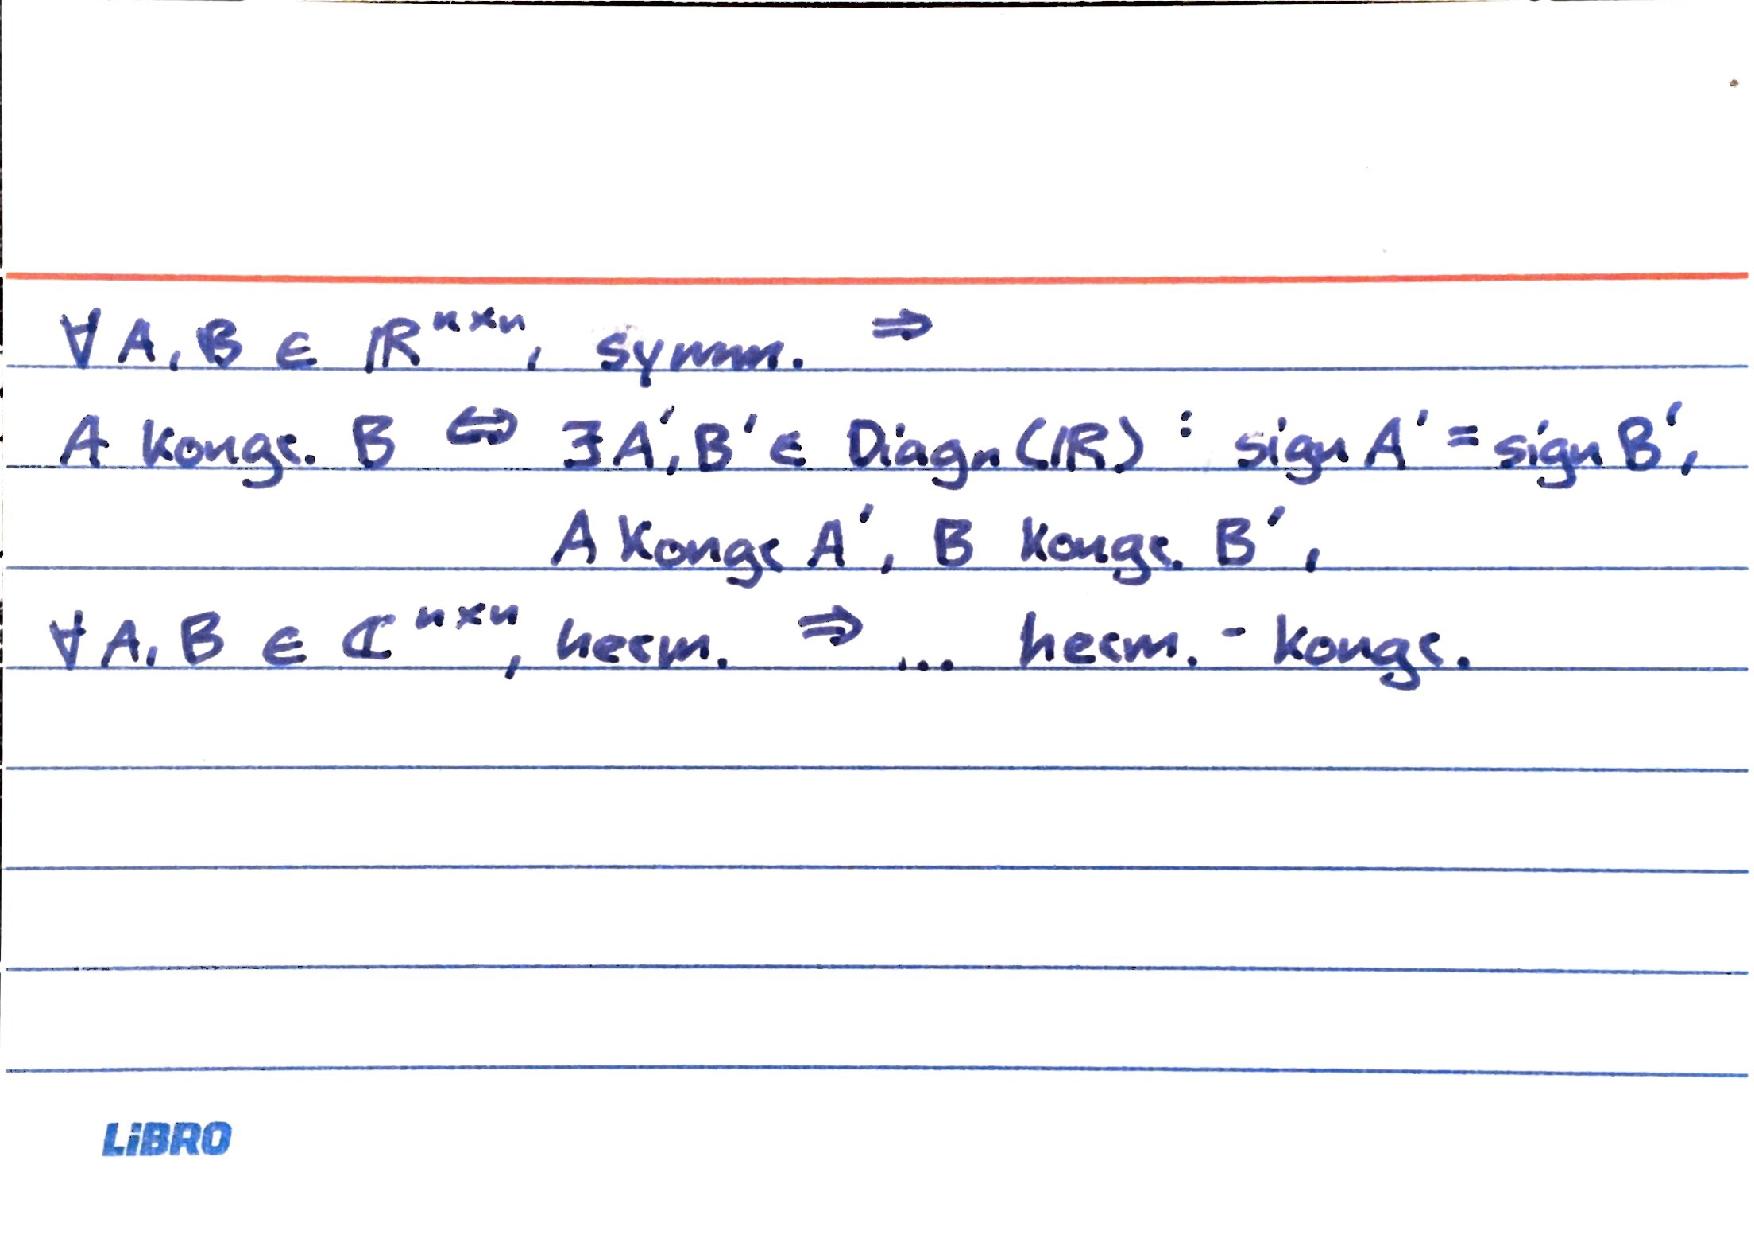 ∀ A, B ∈ ℝⁿˣⁿ, symm. ⇒
A kongr. B ⇔ ∃ A', B' ∈ Diagn(ℝ) : sign A' = sign B',
A kongr A', B kongr. B',
∀ A, B ∈ ℂⁿˣⁿ, herm. ⇒ ... herm. - kongr.
LiBRO